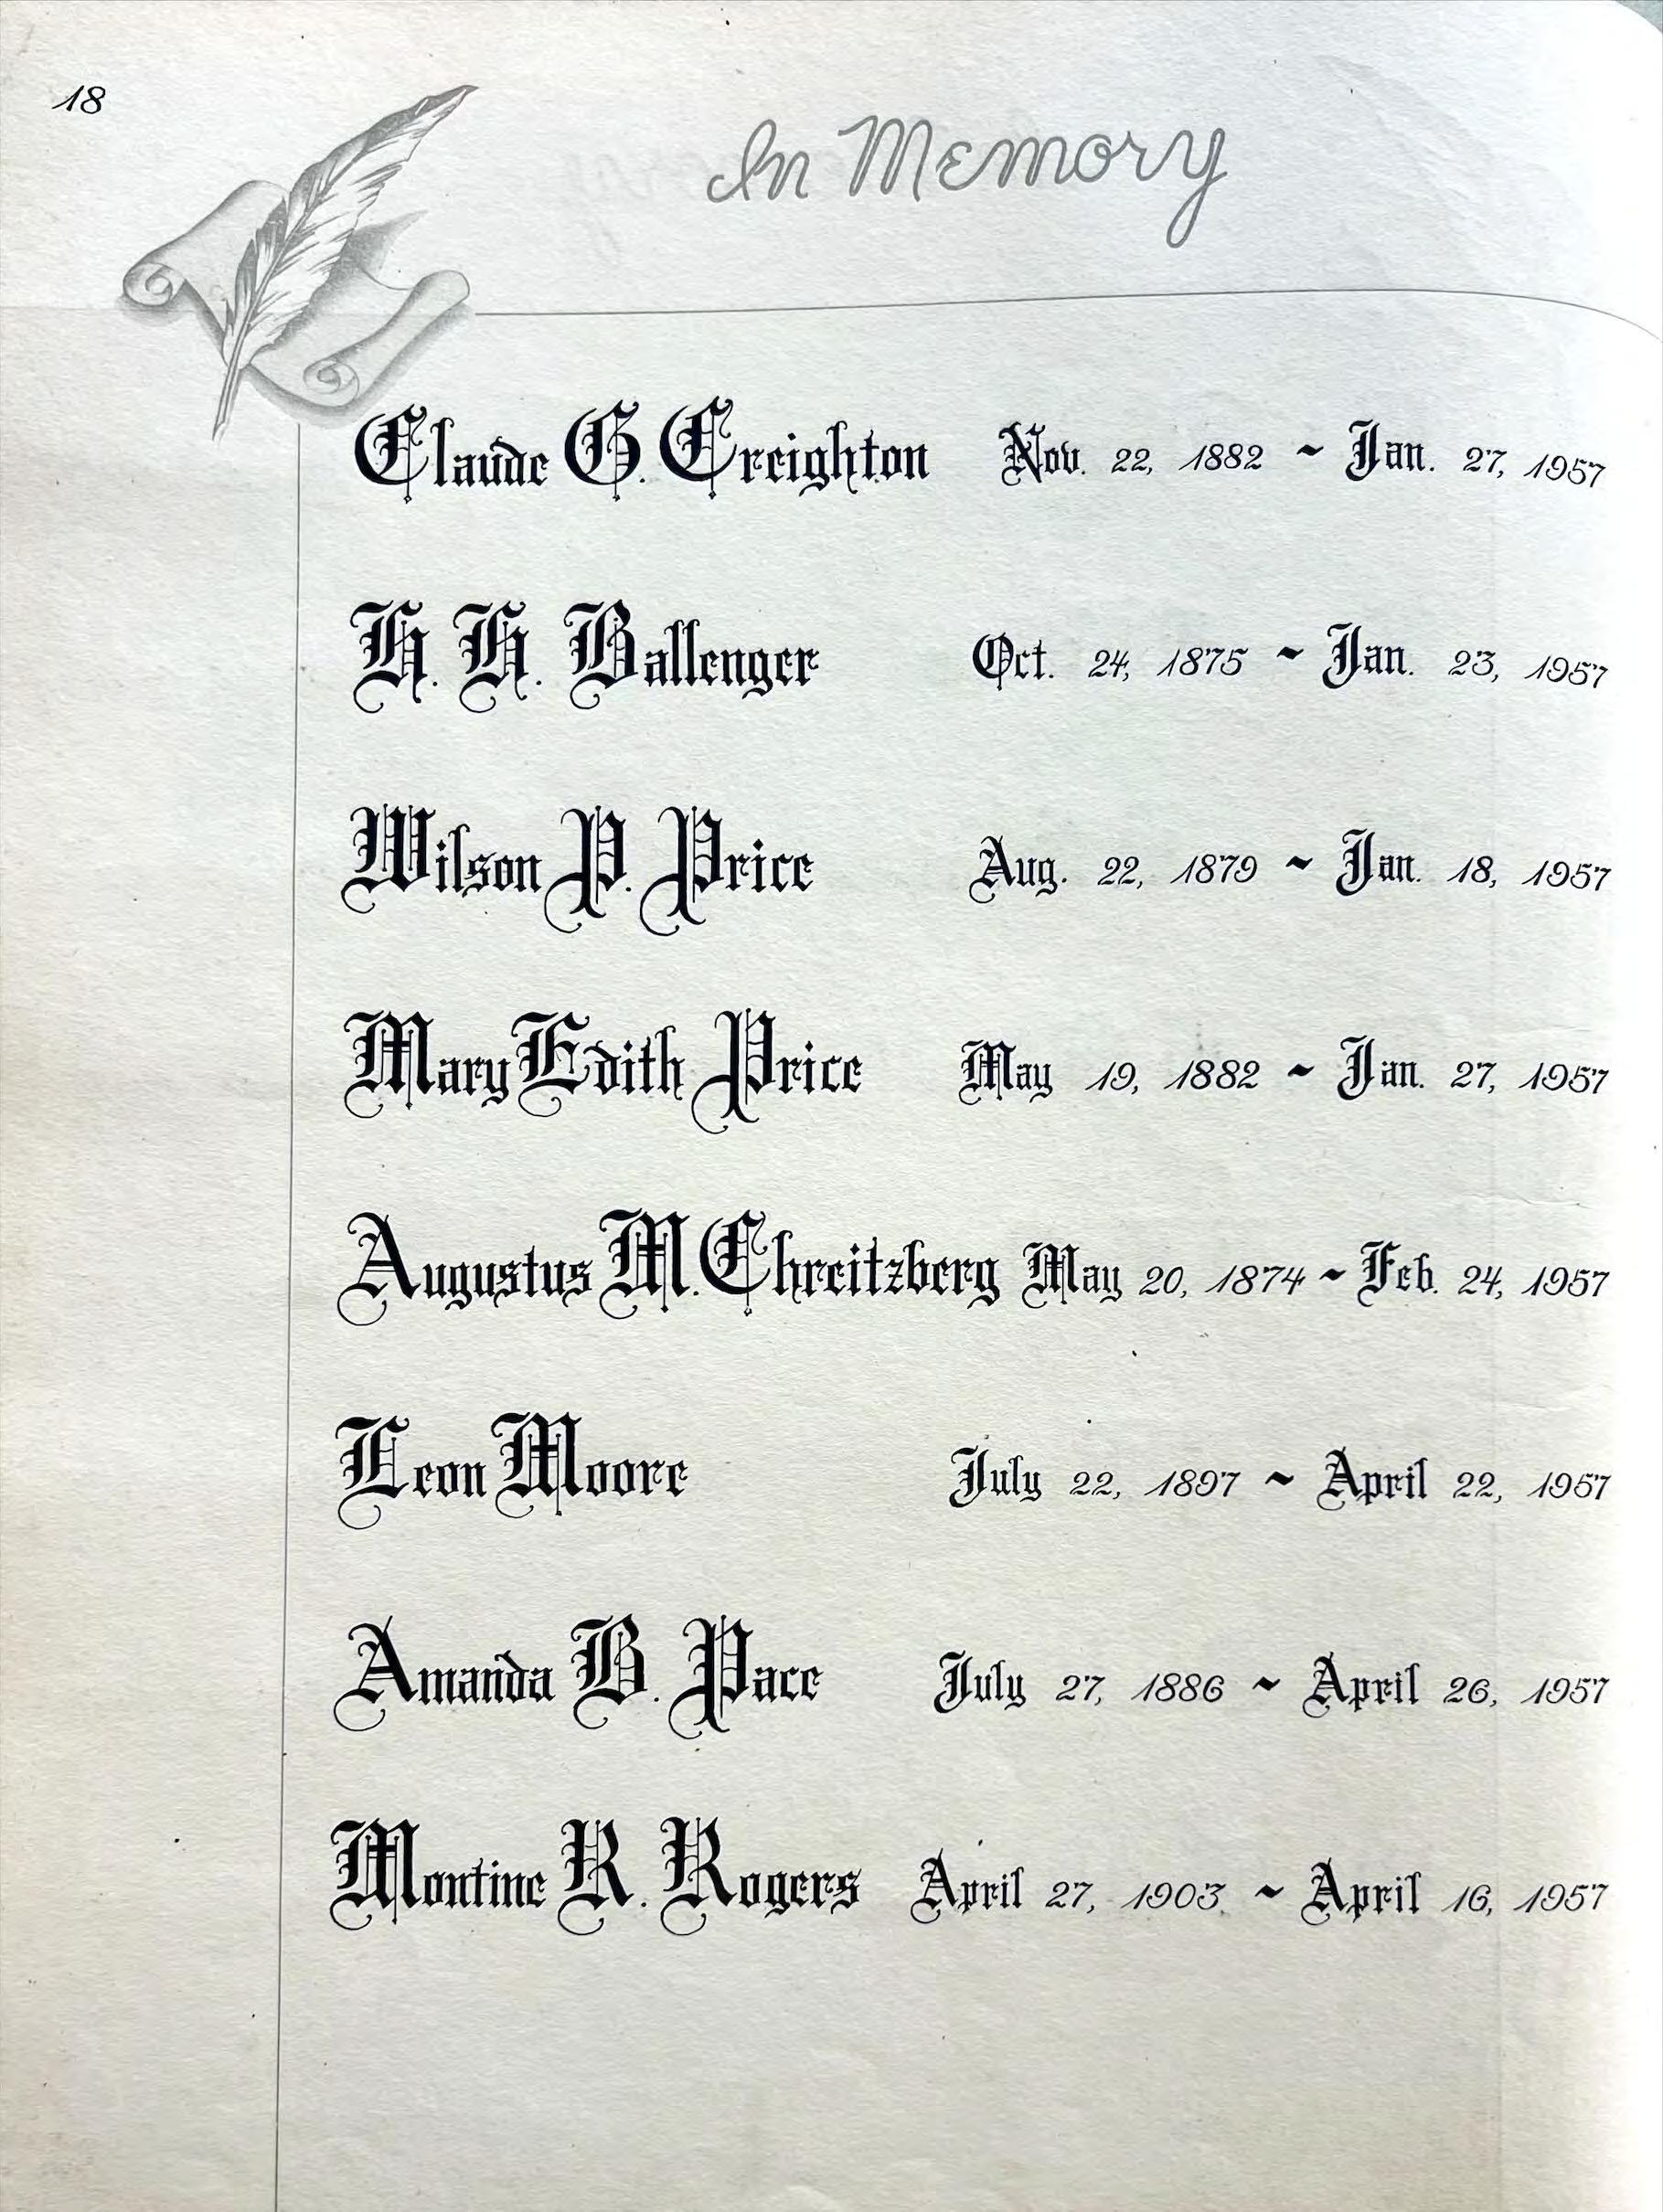 18
In Memory
Claude G. Creighton Nov. 22, 1882 ~ Jan. 27, 1957
H. H. Ballenger Oct. 24, 1875 ~ Jan. 23, 1957
Wilson P. Price Aug. 22, 1879 ~ Jan. 18, 1957
Mary Edith Price May 19, 1882 ~ Jan. 27, 1957
Augustus M. Chreitzberg May 20, 1874 ~ Feb. 24, 1957
Leon Moore July 22, 1897 ~ April 22, 1957
Amanda B. Pace July 27, 1886 ~ April 26, 1957
Montine R. Rogers April 27, 1903 ~ April 16, 1957